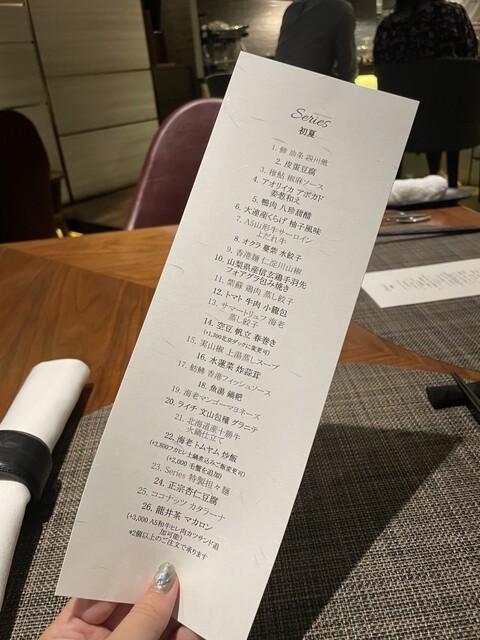 Series
初夏
1. 鰺 油条 四川風
2. 皮蛋豆腐
3. 稚鮎 椒麻ソース
4. アオリイカ アボカド
姜葱和え
5. 鴨肉 八珍甜醋
6. 大連産くらげ 柚子風味
7. A5山形牛サーロイン
よだれ牛
8. オクラ 蔓紫 水餃子
9. 香港麺 仁淀川山椒
10. 山梨県産信玄鶏手羽先
フォアグラ包み焼き
11. 紫蘇 鶏肉 蒸し餃子
12. トマト 牛肉 小籠包
13. サマートリュフ 海老
蒸し餃子
14. 空豆 帆立 春巻き
(+1,300北京ダックに変更可)
15. 実山椒 上湯蒸しスープ
16. 水蓮菜 炸蒜茸
17. 魴鮄 香港フィッシュソース
18. 魚湯 鍋粑
19. 海老マンゴーマヨネーズ
20. ライチ 文山包種 グラニテ
21. 北海道産十勝牛
火鍋仕立て
22. 海老 トムヤム 炒飯
(+3,800フカヒレ土鍋煮込みご飯変更可)
(+2,000 毛蟹を追加)
23. Series 特製担々麺
24. 正宗杏仁豆腐
25. ココナッツ カタラーナ
26. 龍井茶 マカロン
(+3,000 A5和牛ヒレ肉カツサンド追
加可能)
*2個以上のご注文で承ります